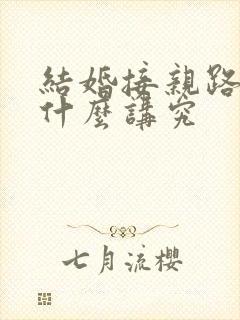 結婚接親路
什麼講究
七月流櫻